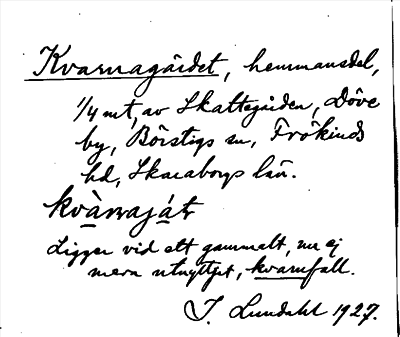 Kvarnagärdet, hemmansdel,
1/4 mt, av Skattegården, Döve
by, Börstigs sn, Frökinds
hd, Skaraborgs län.
kvànaját
Ligger vid ett gammalt, nu ej
mera utnyttjat, kvarnfall.
I. Lundahl 1927.